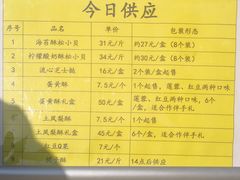 今日供应
序号 品名 单价 包装形态
1 海苔酥松小贝 31元/斤 约27元/盒（8个装）
2 柠檬酸奶酥松小贝 31元/斤 约30元/盒（8个装）
3 流心芝士挞 16元/盒 2个装/盒起售
4 蛋黄酥 7.5元/个 1个起售，莲蓉、红豆两种口味
5 蛋黄酥礼盒 50元/盒 莲蓉、红豆两种口味，6个/盒，适合作伴手礼
6 土凤梨酥 7.5元/个 1个起售
7 土凤梨酥礼盒 45元/盒 6个/盒，适合作伴手礼
8 红豆Q果 7元/个
9 酥子酥 21元/斤 14点后供应